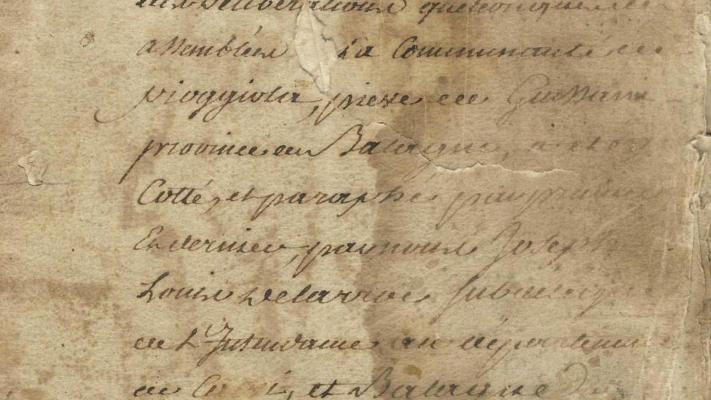 aux deliberations quelconques des
assemblées la Communauté de
pioggiola, pieve de Giussani
province de Balagne, a été
Cotté, et paraphé par premier
Et dernier, par nous Joseph
Louis Delarroc Subdélégué
de L'Intendance au département
de et Balagne